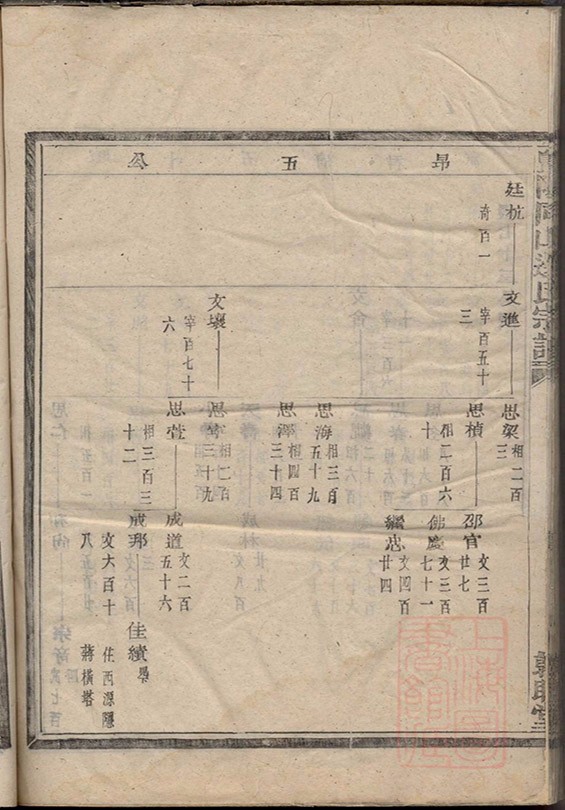 昂五公
廷杭
奇百一
文進
宰百五十三
思梁
相二百三
思楨
相二百六十
邵官
文三百廿七
佛慶
文三百七十一
繼忠
文四百廿四
思海
相三百五十九
思澤
相四百三十四
文壤
宰百七十六
思寧
相二百三十九
思萱
相三百三十二
成道
文二百五十六
成邦
文六百十八
佳績
住西源隱
蔣橫塔
氏宗譜
上海圖書館藏